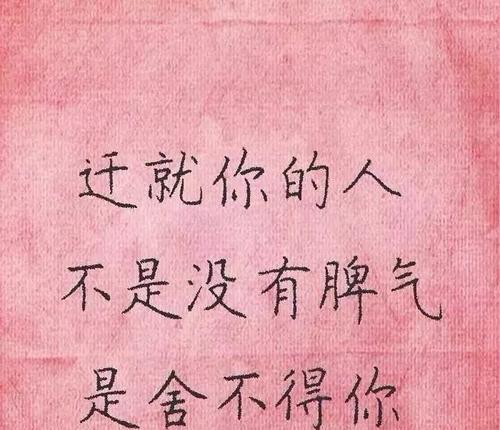 迁就你的人
不是没有脾气
是舍不得你